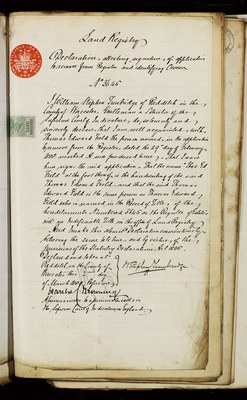 Land Registry
Declaration, attesting signature, of application
to remove from Register and identifying Person
No 3646
I William Stephen Tunbridge of Redditch in the
County of Worcester Gentleman a Solicitor of the
Supreme Court, in do solemnly and
sincerely declare that I am well acquainted with
Thomas Edward Field the person named in the application
to remove from the Register, dated the day of February
and marked A now produced to me, that I saw
him sign the said application. That the name "Thos Ed
Field" at the foot thereof, is the handwriting of the said
Thomas Edward Field and that the said Thomas
Edward Field is the same person as Thomas Edward
Field who is named in the Record of Title of the
hereditaments Numbered 3646 on the Register of Estates
with an Indefeasible Title in the office of Land Registry
And I make this solemn Declaration conscientiously
believing the same to be true and by virtue of the
provisions of the Statutory Declarations Act 1835
Declared at
Redditch in the County of
Worcester this
of March Before me
W Stephen Tunbridge
Browning
A Commissioner to administer Oaths in
the Supreme Court of Judicature England